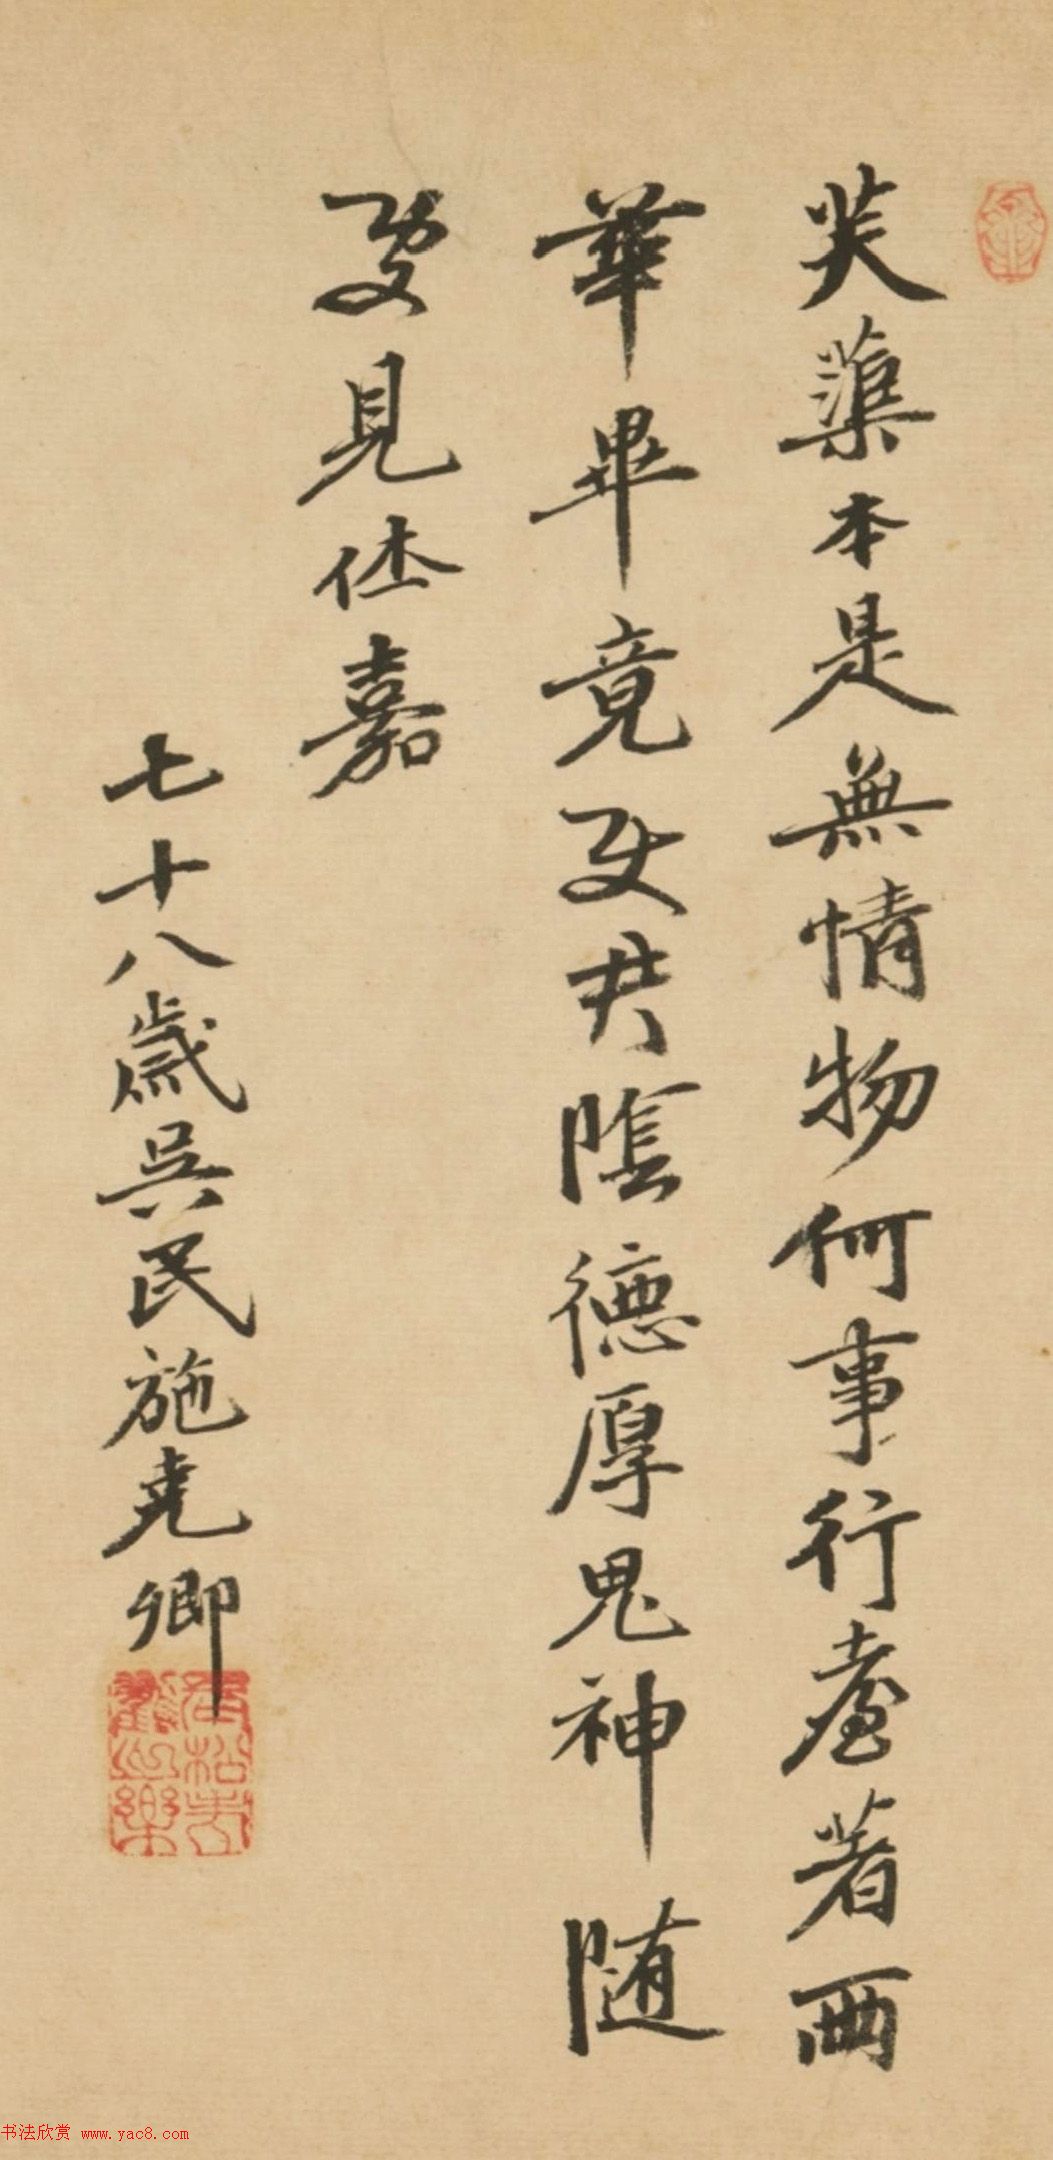 芙蕖本是無情物何事行臺著两
華畢竟史君陰德厚鬼神随
処見休嘉
七十八歲吳民施堯卿
书法欣赏 www.yac8.com